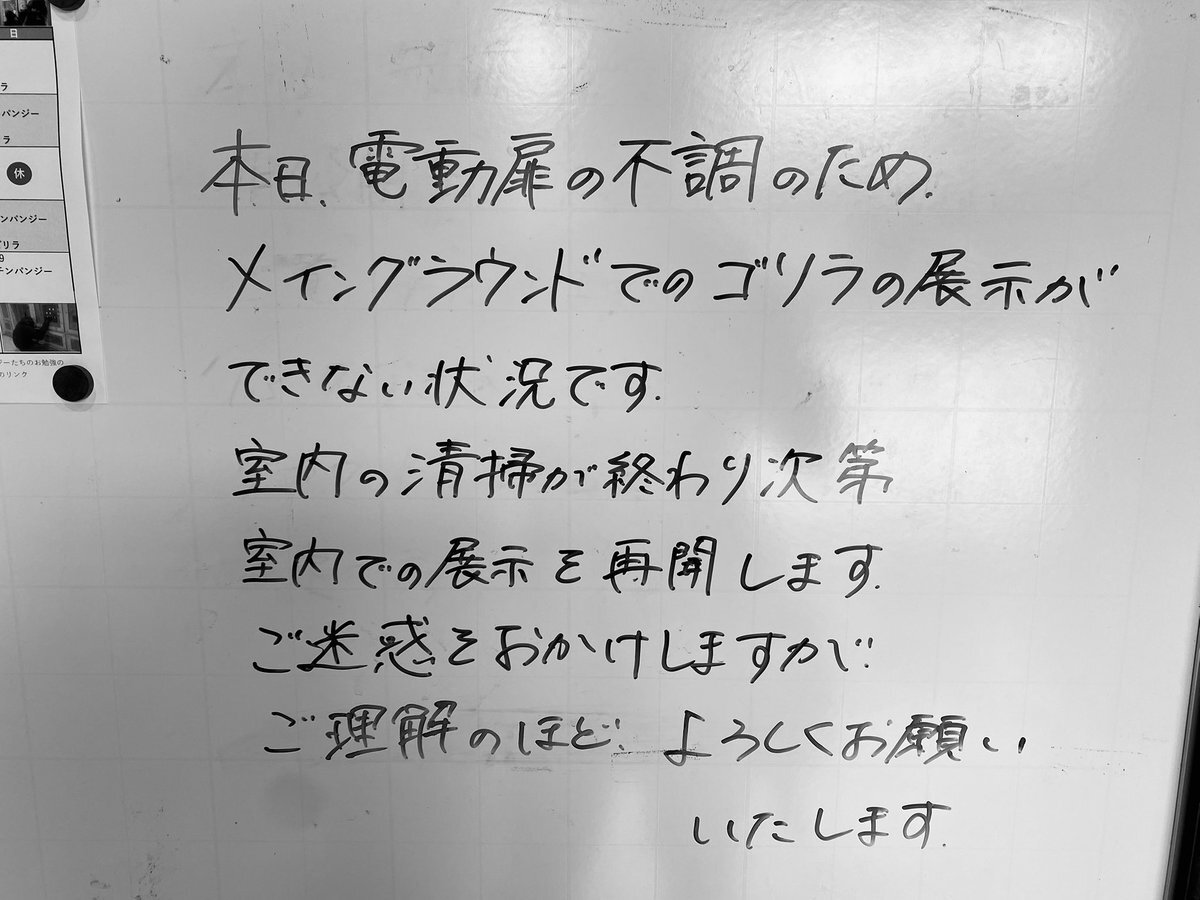 日
ラ
パンジー
ラ
休
ンパンジー
リラ
9
チンパンジー
ジーたちのお勉強の
のリンク
本日、電動扉の不調のため、
メイングラウンドでのゴリラの展示が
できない状況です。
室内の清掃が終わり次第
室内での展示を再開します。
ご迷惑をおかけしますが、
ご理解のほど、よろしくお願い
いたします。